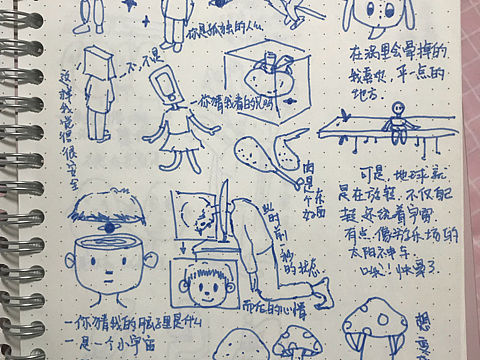 你是孤独的人么
一不,不是
这样我觉得很安全
一你猜我看的见吗
在涡里会晕掉的
我喜欢平一点的
地方
肉是个好
东西
可是,地球就
是在旋转,不仅自
转,还绕着宇宙
有点像游乐场的
太阳神车
快晕了
的状态
的心情
一你猜我的脑子里是什么
一是一个小宇宙
想变